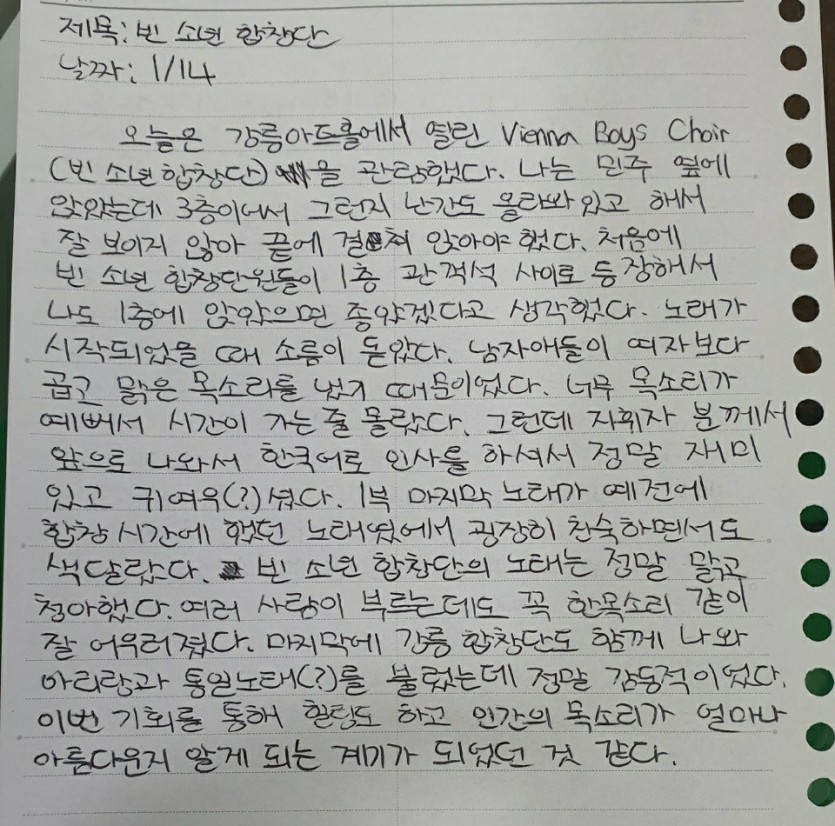 제목: 빈 소년 합창단
날짜: 1/14
오늘은 강릉아트홀에서 열린 Vienna Boys Choir
(빈 소년 합창단)을 관람했다. 나는 민주 옆에
앉았는데 3층이어서 그런지 난간도 올라와 있고 해서
잘 보이지 않아 끝에 걸쳐 앉아야 했다. 처음에
빈 소년 합창단원들이 1층 관객석 사이로 등장해서
나도 1층에 앉았으면 좋았겠다고 생각했다. 노래가
시작되었을 때 소름이 돋았다. 남자애들이 여자보다
곱고 맑은 목소리를 냈기 때문이었다. 너무 목소리가
예뻐서 시간이 가는 줄 몰랐다. 그런데 지휘자 분께서
앞으로 나와서 한국어로 인사를 하셔서 정말 재미
있고 귀여우(?)셨다. 1부 마지막 노래가 예전에
합창 시간에 했던 노래였어서 굉장히 친숙하면서도
색달랐다. 빈 소년 합창단의 노래는 정말 맑고
청아했다. 여러 사람이 부르는데도 꼭 한목소리 같이
잘 어우러졌다. 마지막에 강릉 합창단도 함께 나와
아리랑과 통일노래(?)를 불렀는데 정말 감동적이었다.
이번 기회를 통해 힐링도 하고 인간의 목소리가 얼마나
아름다운지 알게 되는 계기가 되었던 것 같다.